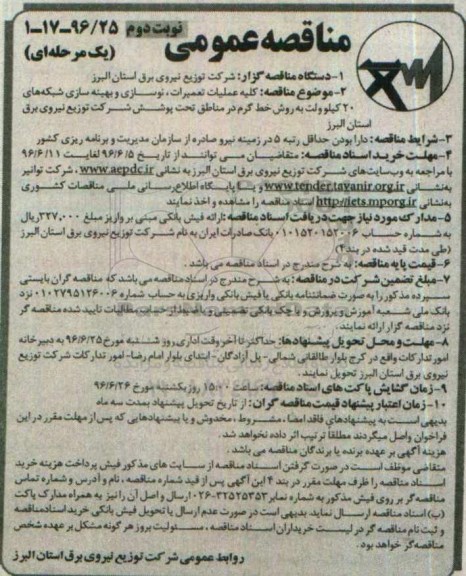 مناقصه عمومی
نوبت دوم
۱-۱۷-۹۶/۲۵
(یک مرحله‌ای)
۱-دستگاه مناقصه گزار: شرکت توزیع نیروی برق استان البرز
۲-موضوع مناقصه: کلیه عملیات تعمیرات، نوسازی و بهینه سازی شبکه‌های
۲۰ کیلو ولت به روش خط گرم در مناطق تحت پوشش شرکت توزیع نیروی برق
استان البرز
۳-شرایط مناقصه: دارا بودن حداقل رتبه ۵ در زمینه نیرو صادره از سازمان مدیریت و برنامه ریزی کشور
۴-مهلت خرید اسناد مناقصه: متقاضیان می توانند از تاریخ ۹۶/۶/۵ لغایت ۹۶/۶/۱۱
با مراجعه به وب‌سایت‌های شرکت توزیع نیروی برق استان البرز به نشانی www.aepdc.ir، شرکت توانیر
به‌نشانی www.tender.tavanir.org.ir و یا پایگاه اطلاع‌رسانی ملی مناقصات کشوری
به‌نشانی http://iets.mporg.ir اسناد مناقصه را مشاهده و اخذ نمایند
۵-مدارک مورد نیاز جهت دریافت اسناد مناقصه: ارائه فیش بانکی مبنی بر واریز مبلغ ۳۲۷,۰۰۰ ریال
به شماره حساب ۰۱۰۱۵۲۰۱۵۲۰۰۶ بانک صادرات ایران به نام شرکت توزیع نیروی برق استان البرز
(طی مدت قید شده در بند۴)
۶-قیمت پایه مناقصه: به شرح مندرج در اسناد مناقصه می باشد.
۷-مبلغ تضمین شرکت در مناقصه: به شرح مندرج در اسناد مناقصه می باشد که مناقصه گران بایستی
سپرده مذکور را به صورت ضمانتنامه بانکی یا فیش بانکی واریزی به حساب شماره ۰۱۰۲۷۹۵۱۲۶۰۰۶ نزد
بانک ملی شعبه آموزش و پرورش و یا چک بانکی تضمینی و یا ضبط از حساب مطالبات تایید شده مناقصه گر
نزد مناقصه گزار ارائه نمایند.
۸-مهلت و محل تحویل پیشنهادها: حداکثر تا آخر وقت اداری روز شنبه مورخ ۹۶/۶/۲۵ به دبیرخانه
امور تدارکات واقع در کرج بلوار طالقانی شمالی- پل آزادگان- ابتدای بلوار امام رضا- امور تدارکات شرکت توزیع
نیروی برق استان البرز تحویل نمایند.
۹-زمان گشایش پاکت های اسناد مناقصه: ساعت ۱۵:۰۰ روز یکشنبه مورخ ۹۶/۶/۲۶
۱۰-زمان اعتبار پیشنهاد قیمت مناقصه گران: از تاریخ تحویل پیشنهاد بمدت سه ماه
بدیهی است به پیشنهادهای فاقد امضا، مشروط، مخدوش و یا پیشنهادهایی که پس از مهلت مقرر در این
فراخوان واصل میگردند مطلقا ترتیب اثر داده نخواهد شد.
هزینه آگهی بر عهده برنده یا برندگان مناقصه می باشد.
متقاضی موظف است در صورت گرفتن اسناد مناقصه از سایت های مذکور فیش پرداخت هزینه خرید
اسناد مناقصه را ظرف مهلت مقرر در بند ۴ این آگهی پس از قید شماره مناقصه، نام و آدرس و شماره تماس
مناقصه گر بر روی فیش مذکور به شماره نمابر ۳۲۵۲۵۳۵۳-۰۲۶ ارسال و اصل آن را نیز به همراه مدارک پاکت
(ب) اسناد مناقصه ارسال نماید. بدیهی است در صورت عدم ارسال یا تحویل فیش بانکی خرید اسناد مناقصه
و ثبت نام مناقصه گر در لیست خریداران اسناد مناقصه، مسئولیت بروز هر گونه مشکل بر عهده شخص
مناقصه گر خواهد بود.
روابط عمومی شرکت توزیع نیروی برق استان البرز